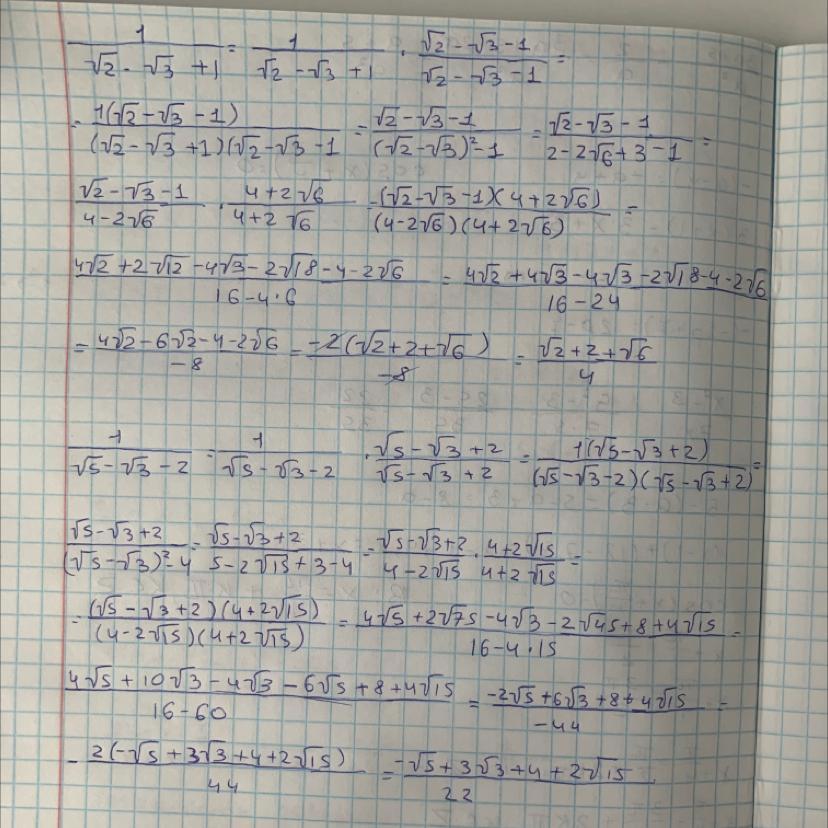 1/(√2 - √3 + 1) = 1/(√2 - √3 + 1) · (√2 - √3 - 1)/(√2 - √3 - 1) =
= 1(√2 - √3 - 1)/((√2 - √3 + 1)(√2 - √3 - 1) = (√2 - √3 - 1)/((√2 - √3)² - 1) = (√2 - √3 - 1)/(2 - 2√6 + 3 - 1) =
(√2 - √3 - 1)/(4 - 2√6) · (4 + 2√6)/(4 + 2√6) = (√2 - √3 - 1)(4 + 2√6)/((4 - 2√6)(4 + 2√6)) =
(4√2 + 2√12 - 4√3 - 2√18 - 4 - 2√6)/(16 - 4·6) = (4√2 + 4√3 - 4√3 - 2√18 - 4 - 2√6)/(16 - 24)
= (4√2 - 6√2 - 4 - 2√6)/(-8) = -2(√2 + 2 + √6)/(-8) = (√2 + 2 + √6)/4
1/(√5 - √3 - 2) = 1/(√5 - √3 - 2) · (√5 - √3 + 2)/(√5 - √3 + 2) = 1(√5 - √3 + 2)/((√5 - √3 - 2)(√5 - √3 + 2)) =
(√5 - √3 + 2)/((√5 - √3)² - 4) = (√5 - √3 + 2)/(5 - 2√15 + 3 - 4) = (√5 - √3 + 2)/(4 - 2√15) · (4 + 2√15)/(4 + 2√15) =
= (√5 - √3 + 2)(4 + 2√15)/((4 - 2√15)(4 + 2√15)) = (4√5 + 2√75 - 4√3 - 2√45 + 8 + 4√15)/(16 - 4·15) =
(4√5 + 10√3 - 4√3 - 6√5 + 8 + 4√15)/(16 - 60) = (-2√5 + 6√3 + 8 + 4√15)/(-44) =
- 2(-√5 + 3√3 + 4 + 2√15)/44 = (-√5 + 3√3 + 4 + 2√15)/22